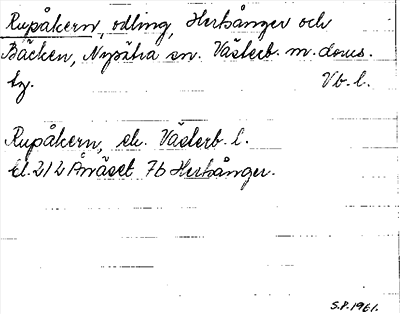 Rupåkern, odling, Herrånger och
Bäcken, Nysätra sn. Västerb. m. doms.
Vb. l.
Rupåkern, ek. Västerb. l.
bl. 212 Ånäset 7b Herrånger.
S.P. 1961.